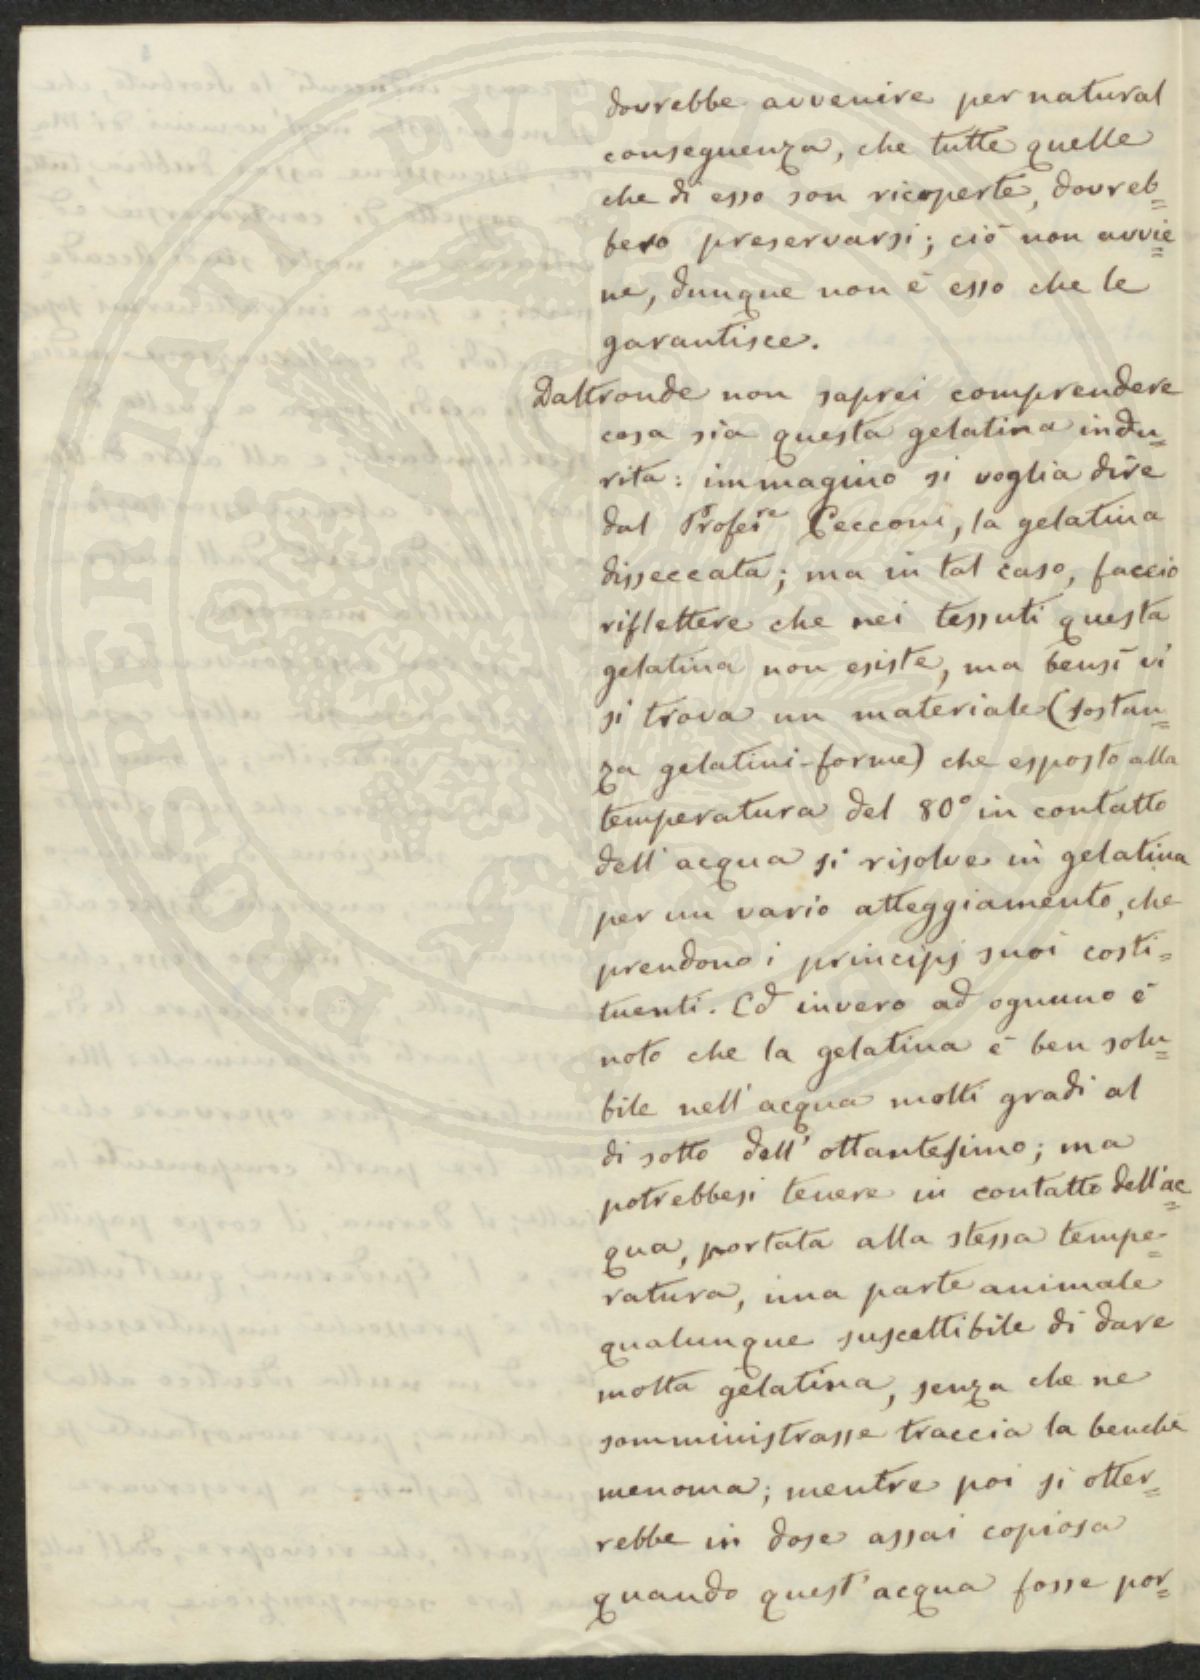 dovrebbe avvenire per natural
conseguenza, che tutte quelle
che di esso son ricoperte, dovreb=
bero preservarsi; ciò non avvie=
ne, dunque non è esso che le
garantisce.
Daltronde non saprei comprendere
cosa sia questa gelatina indu=
rita: immagino si voglia dire
dal Profes.re Cecconi, la gelatina
disseccata; ma in tal caso, faccio
riflettere che nei tessuti questa
gelatina non esiste, ma bensì vi
si trova un materiale (sostan=
za gelatini-forme) che esposto alla
temperatura del 80° in contatto
dell'acqua si risolve in gelatina
per un vario atteggiamento, che
prendono i principj suoi costi=
tuenti. Ed invero ad ognuno è
noto che la gelatina è ben solu=
bile nell'acqua molti gradi al
di sotto dell'ottantesimo; ma
potrebbesi tenere in contatto dell'ac=
qua, portata alla stessa tempe=
ratura, una parte animale
qualunque suscettibile di dare
molta gelatina, senza che ne
somministrasse traccia la benchè
menoma; mentre poi si otter=
rebbe in dose assai copiosa
quando quest'acqua fosse por=
PROSPERITATI PVBLICAE